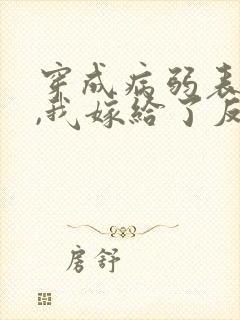 穿成病弱表
,我嫁给了反
房舒